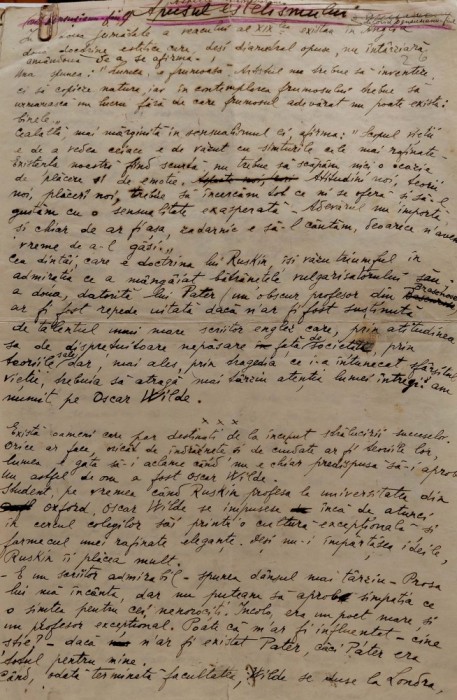 Apusul estetismului
În a doua jumătate a veacului al XIX lea existau în Anglia
două doctrine estetice care, deși diametral opuse, nu întârziară
amândouă de a se afirma.
Una spunea: "Lumea e frumoasă. Artistul nu trebue să inventeze
ci să copieze natura, iar în contemplarea frumosului trebue să
urmărească un lucru fără de care frumosul adevărat nu poate exista:
binele."
Cealaltă, mai mărginită în sensualismul ei, afirma: "Scopul vieții
e de a vedea ceiace e de văzut cu simțurile cele mai rafinate.
Existența noastră fiind scurtă nu trebue să scăpăm nici o ocazie
de plăcere și de emoție. Atitudini noi, teorii
noi, plăceri noi, trebue să încercăm tot ce ni se oferă și să-l
gustăm cu o sensualitate exasperată. Adevărul nu importă
și chiar de ar fi așa, zadarnic e să-l căutăm, deoarece n'avem
vreme de a-l găsi."
Cea dintâi, care e doctrina lui Ruskin, își văzu triumful în
admirația ce a mângâiat bătrânețele vulgarisatorului său
a doua, datorită lui Pater (un obscur profesor din
ar fi fost repede uitată dacă n'ar fi fost susținută
de talentul unui mare scriitor englez care, prin atitudinea
sa de disprețuitoare nepăsare față societate, prin
teoriile sale dar, mai ales, prin tragedia ce i-a întunecat sfârșitul
vieții, trebuia să atragă mai târziu atenția lumei întregi: am
numit pe Oscar Wilde.
x x x
Există oameni cari par destinați de la început strălucirii succeselor.
Orice ar face, oricât de îndrăznețe și de ciudate ar fi teoriile lor,
lumea e gata să-i aclame când nu e chiar predispusă să-i aprobe
Un astfel de om a fost Oscar Wilde.
Student, pe vremea când Ruskin profesa la universitatea din
Oxford, Oscar Wilde se impusese încă de atunci
în cercul colegilor săi printr'o cultură excepțională și
farmecul unei rafinate eleganțe, deși nu-i împărtășea ideile,
Ruskin îi plăcea mult.
- E un scriitor admirabil - spunea dânsul mai târziu - Proza
lui mă încântă, dar nu puteam să aprob simpatia ce
o simțea pentru cei nenorociți. Încolo, era un poet mare, și
un profesor excepțional. Poate că m'ar fi influențat - cine
știe? - dacă n'ar fi existat Pater, căci Pater era
totul pentru mine.
Când, odată terminată facultatea, Wilde se duse la Londra,